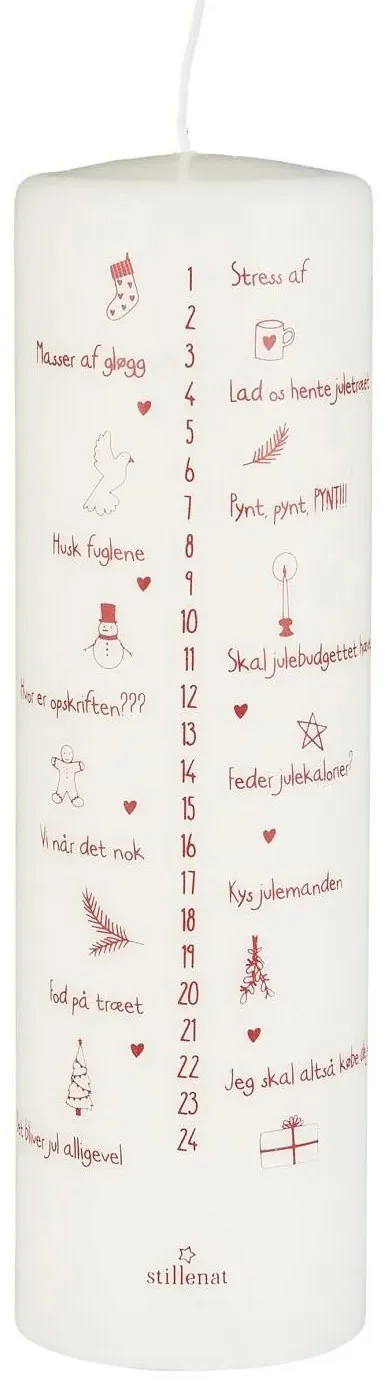 1 Stress af
2
Masser af gløgg 3
4 Lad os hente juletræet
5
6
7 Pynt, pynt, PYNT!!!
Husk fuglene 8
9
10
11 Skal julebudgettet
Hvor er opskriften??? 12
13
14 Feder julekalorier?
15
Vi når det nok 16
17 Kys julemanden
18
19
Fod på træet 20
21
22 Jeg skal altså købe
23
bliver jul alligevel 24
stillenat